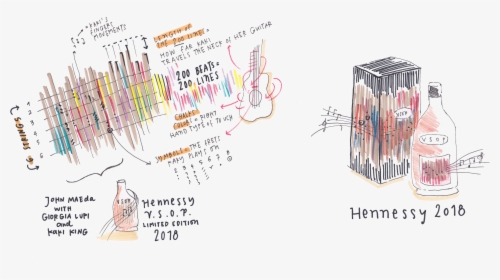 = KAKI'S
FINGERS
MOVEMENTS
LENGTH OF
THE 200 LINES =
HOW FAR KAKI
TRAVELS THE NECK OF HER GUITAR
200 BEATS=
200 LINES
COLOR = RIGHT
HAND TYPE OF TOUCH
SYMBOLS = THE FRET
KAKI PLAYS ON
1 2 3 4 5 6 7 8
6 STRINGS
1
2
3
4
5
6
JOHN MAEDA
WITH
GIORGIA LUPI
and
KAKI KING
Hennessy
V.S.O.P.
LIMITED EDITION
2018
VSOP
V.S.O.P
Hennessy 2018